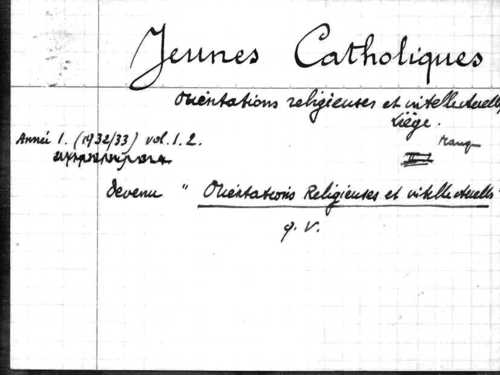 Jeunes Catholiques
Orientations religieuses et intellectuelles
Liège.
Année 1. (1932/33) vol. 1. 2.
manq
devenu " Orientations Religieuses et intellectuelles "
q. v.